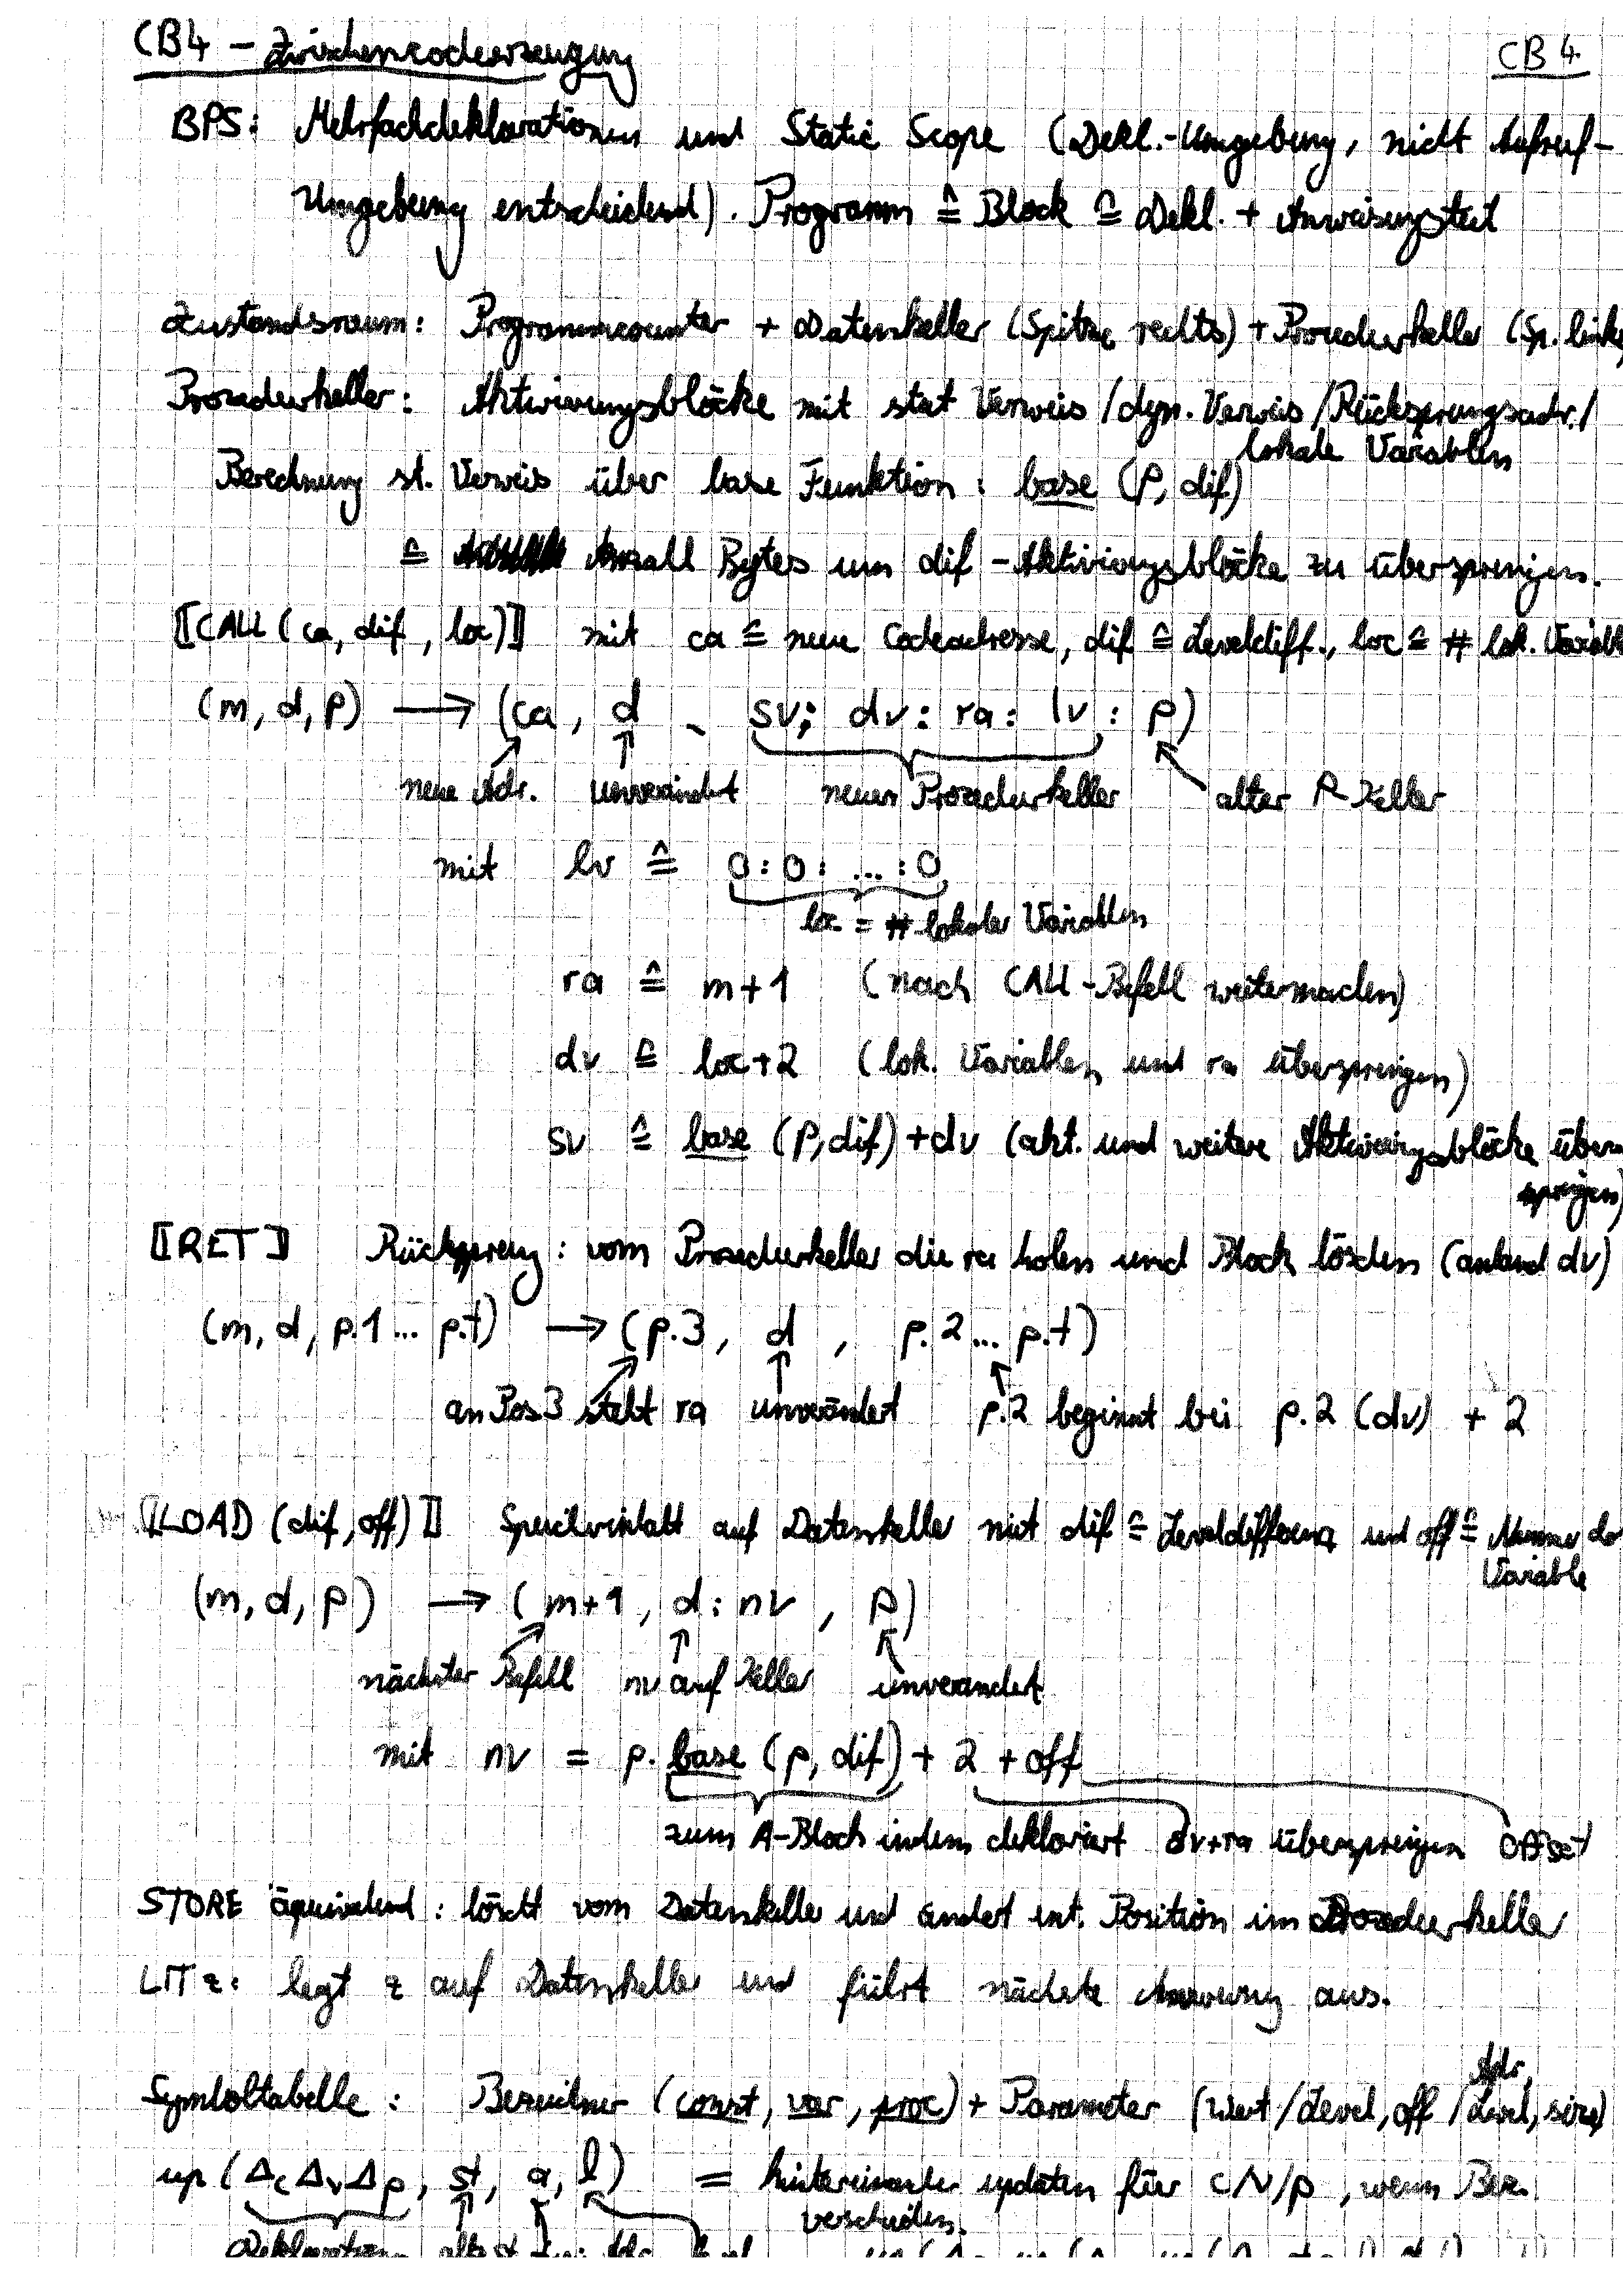 CB4 – Zwischencodeerzeugung
CB 4
BPS: Mehrfachdeklarationen und Static Scope (Dekl.-Umgebung, nicht Aufruf-
Umgebung entscheidend). Programm ≙ Block ≙ Dekl. + Anweisungsteil
Zustandsraum: Programmcounter + Datenkeller (Spitze rechts) + Prozedurkeller (Sp. links
Prozedurkeller: Aktivierungsblöcke mit stat Verweis / dyn. Verweis / Rücksprungadr. /
lokale Variablen
Berechnung st. Verweis über base Funktion: base (p, dif)
≙ Anzahl Bytes um dif-Aktivierungsblöcke zu überspringen.
⟦CALL (ca, dif, loc)⟧ mit ca ≙ neue Codeadresse, dif ≙ Leveldiff., loc ≙ # lok. Variabl
(m, d, p) → (ca, d , sv: dv: ra: lv: p)
neue Adr. unverändert neuer Prozedurkeller alter P-Keller
mit lv ≙ 0:0: ... :0
loc = # lokaler Variablen
ra ≙ m+1 (nach CALL-Befehl weitermachen)
dv ≙ loc+2 (lok. Variablen und ra überspringen)
sv ≙ base (p, dif) + dv (akt. und weitere Aktivierungsblöcke über-
springen)
⟦RET⟧ Rücksprung: vom Prozedurkeller die ra holen und Block löschen (anhand dv)
(m, d, p.1 ... p.t) → (p.3, d , p.2 ... p.t)
an Pos 3 steht ra unverändert p.2 beginnt bei p.2 (dv) + 2
⟦LOAD (dif, off)⟧ Speicherinhalt auf Datenkeller mit dif ≙ Leveldifferenz und off ≙ Nummer der
Variable
(m, d, p) → (m+1, d: nv, p)
nächster Befehl nv auf Keller unverändert
mit nv = p. base (p, dif) + 2 + off
zum A-Block indem dekloriert dv+ra überspringen Offset
STORE äquivalent: löscht vom Datenkeller und ändert ent. Position im Prozedurkeller
LIT z: legt z auf Datenkeller und führt nächste Anweisung aus.
Symboltabelle: Bezeichner (const, var, proc) + Parameter (Wert / Level, off / Adr, Level, size)
up (Δc Δv Δp, st, a, l) = hintereinander updaten für c/v/p, wenn Bez.
verschieden.
Deklaration